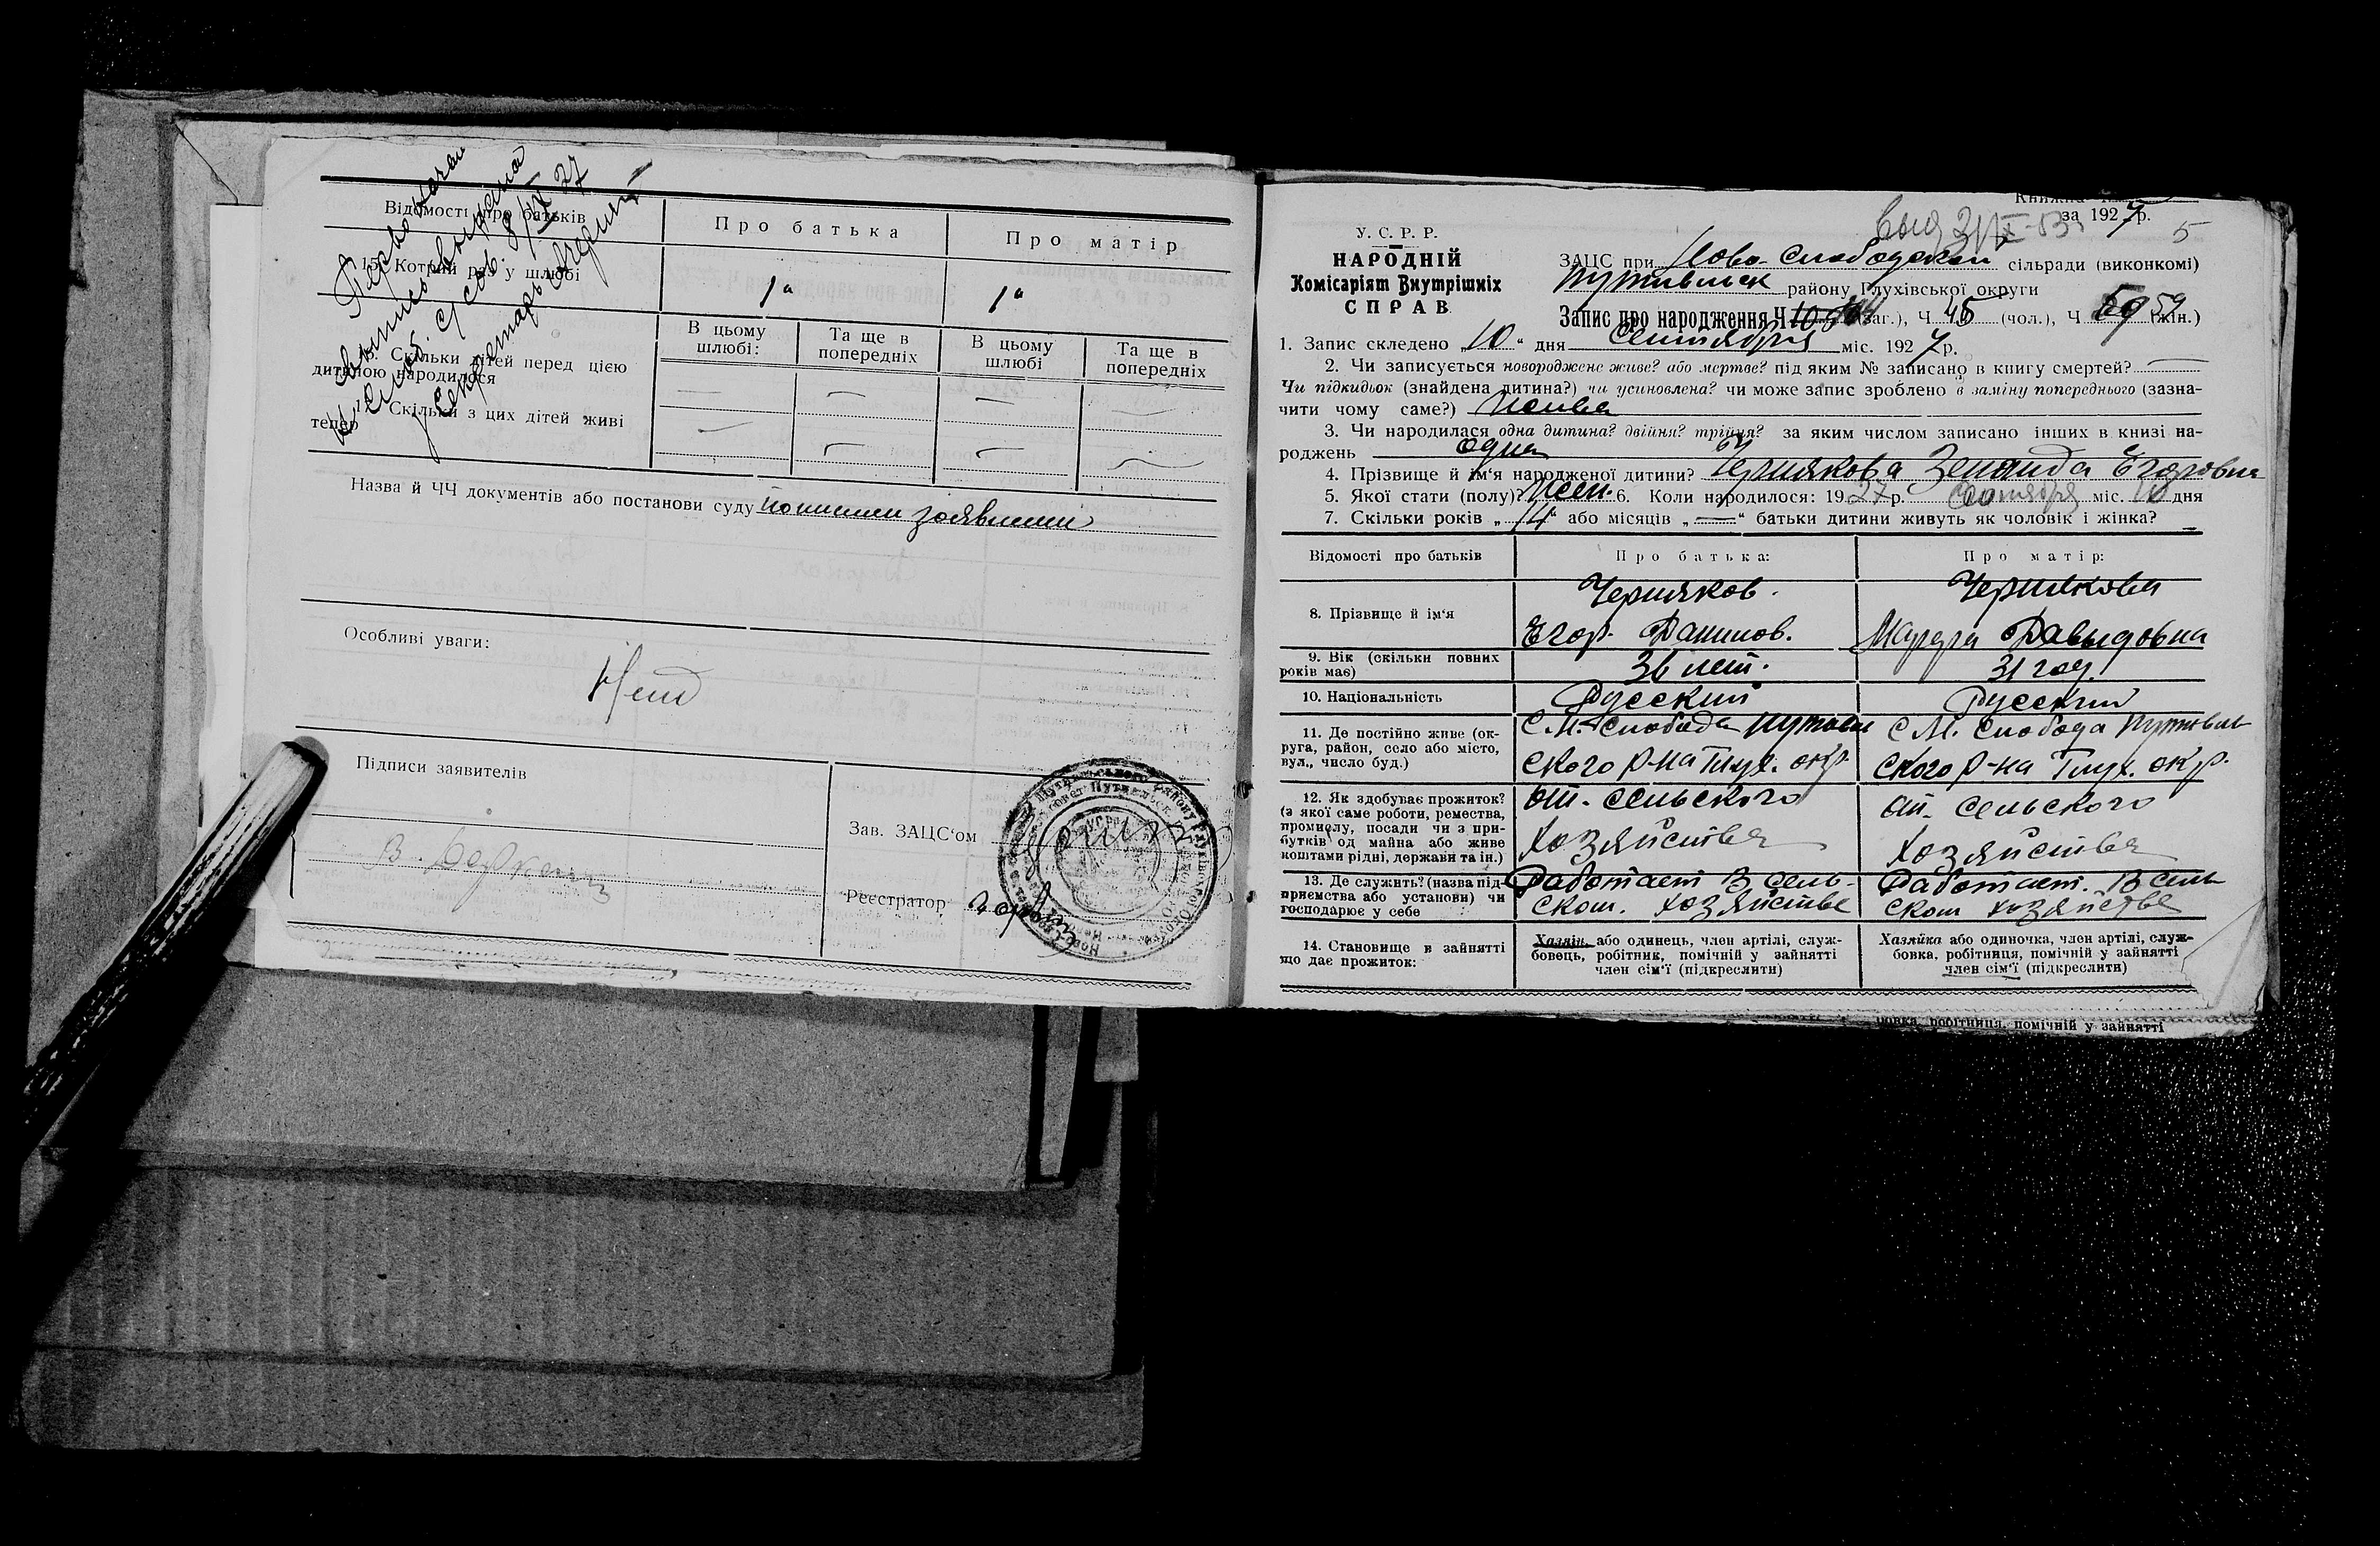 Відомості про батьків
Про батька
Про матір
15. Котрий раз у шлюбі
1й
1й
8/IX 27
Скільки дітей перед цією
дитиною народилося
В цьому
шлюбі:
Та ще в
попередніх
В цьому
шлюбі
Та ще в
попередніх
Скільки з цих дітей живі
тепер
Назва й ЧЧ документів або постанови суду
Особливі уваги:
Нет
Підписи заявителів
Зав. ЗАЦС'ом
Реєстратор
Книжка
за 1927р.
5
У. С. Р. Р.
НАРОДНІЙ
Комісаріят Внутрішніх
СПРАВ
ЗАЦС при Ново-Слободской сільради (виконкомі)
Путивльск району Глухівської округи
Запис про народження Ч (заг.), Ч 45 (чол.), Ч 59 (жін.)
1. Запис складено „10“ дня Сентября міс. 1927р.
2. Чи записується новороджене живе? або мертве? під яким № записано в книгу смертей?
Чи підкидьок (знайдена дитина?) чи усиновлена? чи може запис зроблено в заміну попереднього (зазна-
чити чому саме?) Живая
3. Чи народилася одна дитина? двійня? трійня? за яким числом записано інших в книзі на-
роджень одна
4. Прізвище й ім'я народженої дитини? Чернякова Зенаида Егоровна
5. Якої стати (полу)? Жен. 6. Коли народилося: 1927р. Сентября міс. 10 дня
7. Скільки років „14“ або місяців „—“ батьки дитини живуть як чоловік і жінка?
Відомості про батьків
Про батька:
Про матір:
8. Прізвище й ім'я
Черняков.
Егор. Данилов.
Чернякова
Марфа Давыдовна
9. Вік (скільки повних
років має)
36 лет.
31 год.
10. Національність
Русский
Русский
11. Де постійно живе (ок-
руга, район, село або місто,
вул., число буд.)
С. Н. Слобода Путивль
ского р-на Глух. окр.
С Н. Слобода Путивль
ского р-на Глух. окр.
12. Як здобуває прожиток?
(з якої саме роботи, ремества,
промислу, посади чи з при-
бутків од майна або живе
коштами рідні, держави та ін.)
от. сельского
Хозяйства
от. сельского
Хозяйства
13. Де служить? (назва під-
приємства або установи) чи
господарює у себе
Работает В сель-
ском. хозяйстве
Работает. В сель
ском хозяйстве
14. Становище в зайнятті
що дає прожиток:
Хазяїн або одинець, член артілі, служ-
бовець, робітник, помічній у зайнятті
член сім'ї (підкреслити)
Хазяйка або одиночка, член артілі, служ-
бовка, робітниця, помічній у зайнятті
член сім'ї (підкреслити)
робітниця, помічній у зайнятті